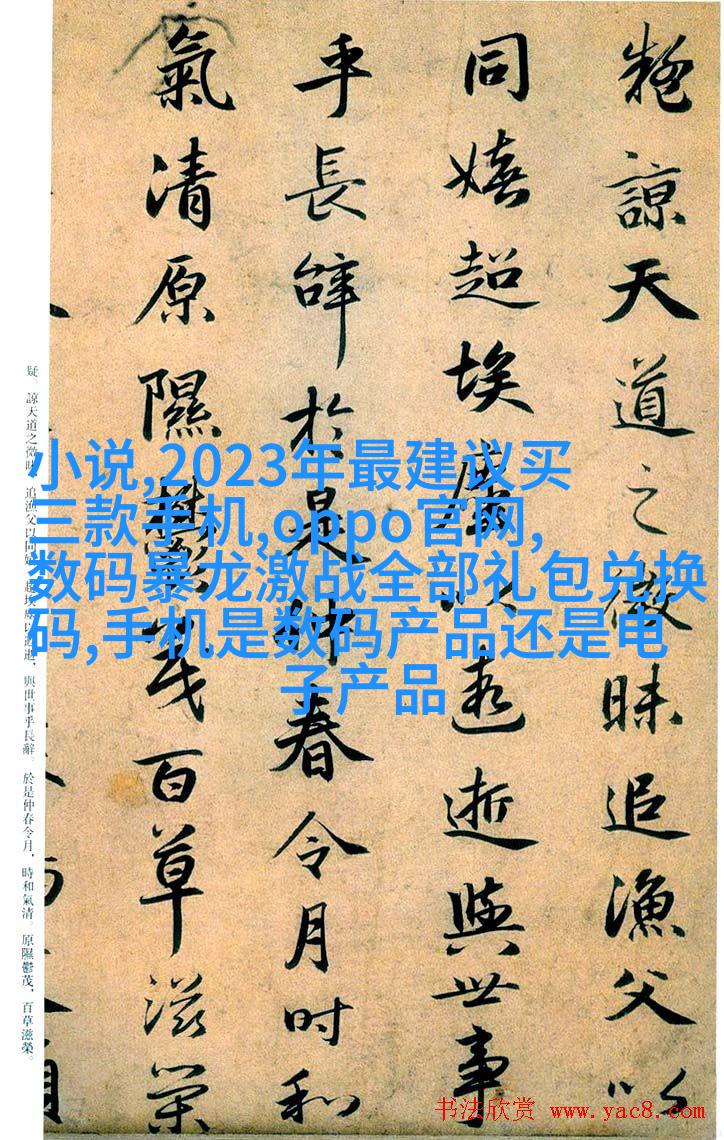 疑諒天道之微昧追漁父以
同嬉超埃塵以遐逝與世事
乎長辭於是仲春令月時和
氣清原隰鬱茂百草滋榮
疑。諒天道之微昧，追漁父以同嬉。超埃塵以遐逝，與世事乎長辭。於是仲春令月，時和氣清。原隰鬱茂，百草滋榮。
小说,2023年最建议买
三款手机,oppo官网,
数码暴龙激战全部礼包兑换
码,手机是数码产品还是电
子产品
书法欣赏 www.yac8.com